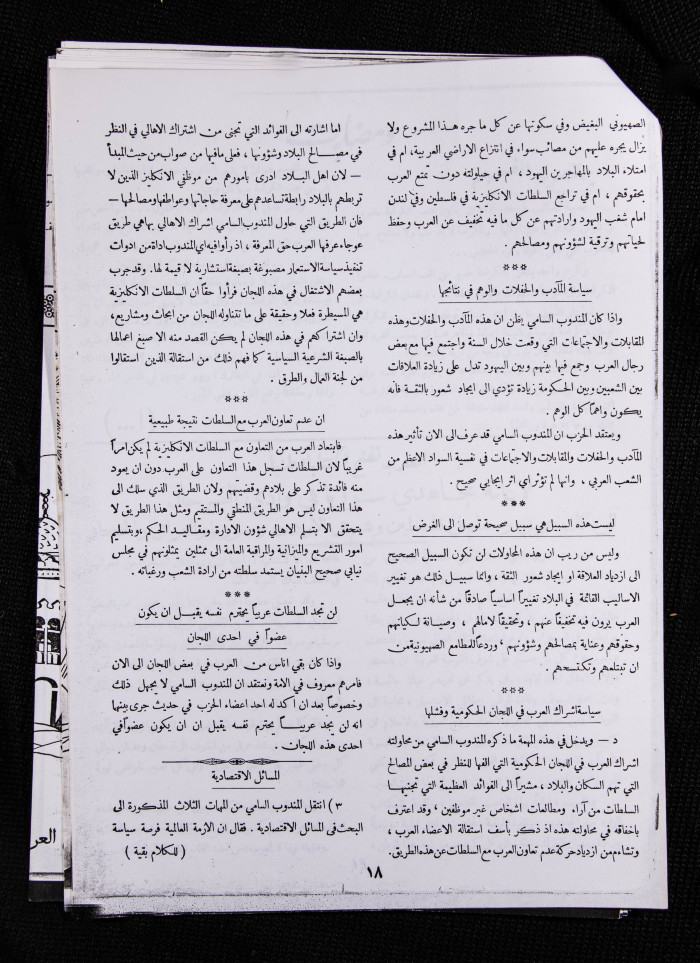 الصهيوني البغيض وفي سكوتها عن كل ما جره هذا المشروع ولا
يزال يجره عليهم من مصائب سواء في انتزاع الاراضي العربية، ام في
امتلاء البلاد بالمهاجرين اليهود، ام في حيلولته دون تمتع العرب
بحقوقهم، ام في تراجع السلطات الانكليزية في فلسطين وفي لندن
امام شغب اليهود وارادتهم عن كل ما فيه تخفيف عن العرب وحفظ
لحياتهم وترقية لشؤونهم ومصالحهم .
***
سياسة المآدب والحفلات والوهم في نتائجها
واذا كان المندوب السامي يظن ان هذه المآدب والحفلات وهذه
المقابلات والاجتماعات التي وقعت خلال السنة واجتمع فيها مع بعض
رجال العرب وجمع فيها بينهم وبين اليهود تدل على زيادة العلاقات
بين الشعبين وبين الحكومة زيادة تؤدي الى ايجاد شعور بالثقة فأنه
يكون واهماً كل الوهم .
ويعتقد الحزب ان المندوب السامي قد عرف الى الان تأثير هذه
المآدب والحفلات والمقابلات والاجتماعات في نفسية السواد الاعظم من
الشعب العربي ، وانها لم تؤثر اي اثر ايجابي صحيح .
***
ليست هذه السبيل هي سبيل صحيحة توصل الى الغرض
وليس من ريب ان هذه المحاولات لن تكون السبيل الصحيح
الى ازدياد العلاقة او ايجاد شعور الثقة ، وانما سبيل ذلك هو تغيير
الاساليب القائمة في البلاد تغييراً اساسياً صادقاً من شأنه ان يجعل
العرب يرون فيه تخفيفاً عنهم ، وتحقيقاً لامالهم ، وصيانة لكيانهم
وحقوقهم وعناية بمصالحهم وشؤونهم ، وردعاً للمطامع الصهيونية من
ان تبتلعهم وتكتسحهم .
***
سياسة اشراك العرب في اللجان الحكومية وفشلها
د — ويدخل في هذه المهمة ما ذكره المندوب السامي من محاولته
اشراك العرب في اللجان الحكومية التي الفها للنظر في بعض المصالح
التي تهم السكان والبلاد ، مشيراً الى الفوائد العظيمة التي تجنيها
السلطات من آراء ومطالعات اشخاص غير موظفين ، وقد اعترف
باخفاقه في محاولته هذه اذ ذكر بأسف استقالة الاعضاء العرب ،
وتشاءم من ازدياد حركة عدم تعاون العرب مع السلطات عن هذه الطريق.
اما اشارته الى الفوائد التي تجنى من اشتراك الاهالي في النظر
في مصالح البلاد وشؤونها ، فعلى مافيها من صواب من حيث المبدأ
— لان اهل البلاد ادرى بامورهم من موظفي الانكليز الذين لا
تربطهم بالبلاد رابطة تساعدهم على معرفة حاجاتها وعواطفها ومصالحها —
فان الطريق التي حاول المندوب السامي اشراك الاهالي بها هي طريق
عوجاء عرفها العرب حق المعرفة ، اذ رأوا فيه اي المندوب اداة من ادوات
تنفيذ سياسة الاستعمار مصبوغة بصبغة استشارية لا قيمة لها. وقد جرب
بعضهم الاشتغال في هذه اللجان فرأوا حقاً ان السلطات الانكليزية
هي المسيطرة فعلا وحقيقة على ما تتناوله اللجان من ابحاث ومشاريع،
وان اشتراكهم في هذه اللجان لم يكن القصد منه الا صبغ اعمالها
بالصبغة الشرعية السياسية كما فهم ذلك من استقالة الذين استقالوا
من لجنة العمال والطرق .
***
ان عدم تعاون العرب مع السلطات نتيجة طبيعية
فابتعاد العرب من التعاون مع السلطات الانكليزية لم يكن امراً
غريباً لان السلطات تسجل هذا التعاون على العرب دون ان يعود
منه فائدة تذكر على بلادهم وقضيتهم ولان الطريق الذي سلك الى
هذا التعاون ليس هو الطريق المنطقي والمستقيم ومثل هذا الطريق لا
يتحقق الا بتسلم الاهالي شؤون الادارة ومقاليد الحكم ،وبتسليم
امور التشريع والميزانية والمراقبة العامة الى ممثلين يمثلونهم في مجلس
نيابي صحيح البنيان يستمد سلطته من ارادة الشعب ورغباته .
***
لن تجد السلطات عربياً يحترم نفسه يقبل ان يكون
عضواً في احدى اللجان
واذا كان بقي اناس من العرب في بعض اللجان الى الان
فامرهم معروف في الامة ونعتقد ان المندوب السامي لا يجهل ذلك
وخصوصاً بعد ان اكد له احد اعضاء الحزب في حديث جرى بينهما
انه لن يجد عربياً يحترم نفسه يقبل ان ان يكون عضواً في
احدى هذه اللجان .
المسائل الاقتصادية
٣ ) انتقل المندوب السامي من المهات الثلاث المذكورة الى
البحث في المسائل الاقتصادية . فقال ان الازمة العالمية فرصة سياسة
( للكلام بقية )
١٨
العر